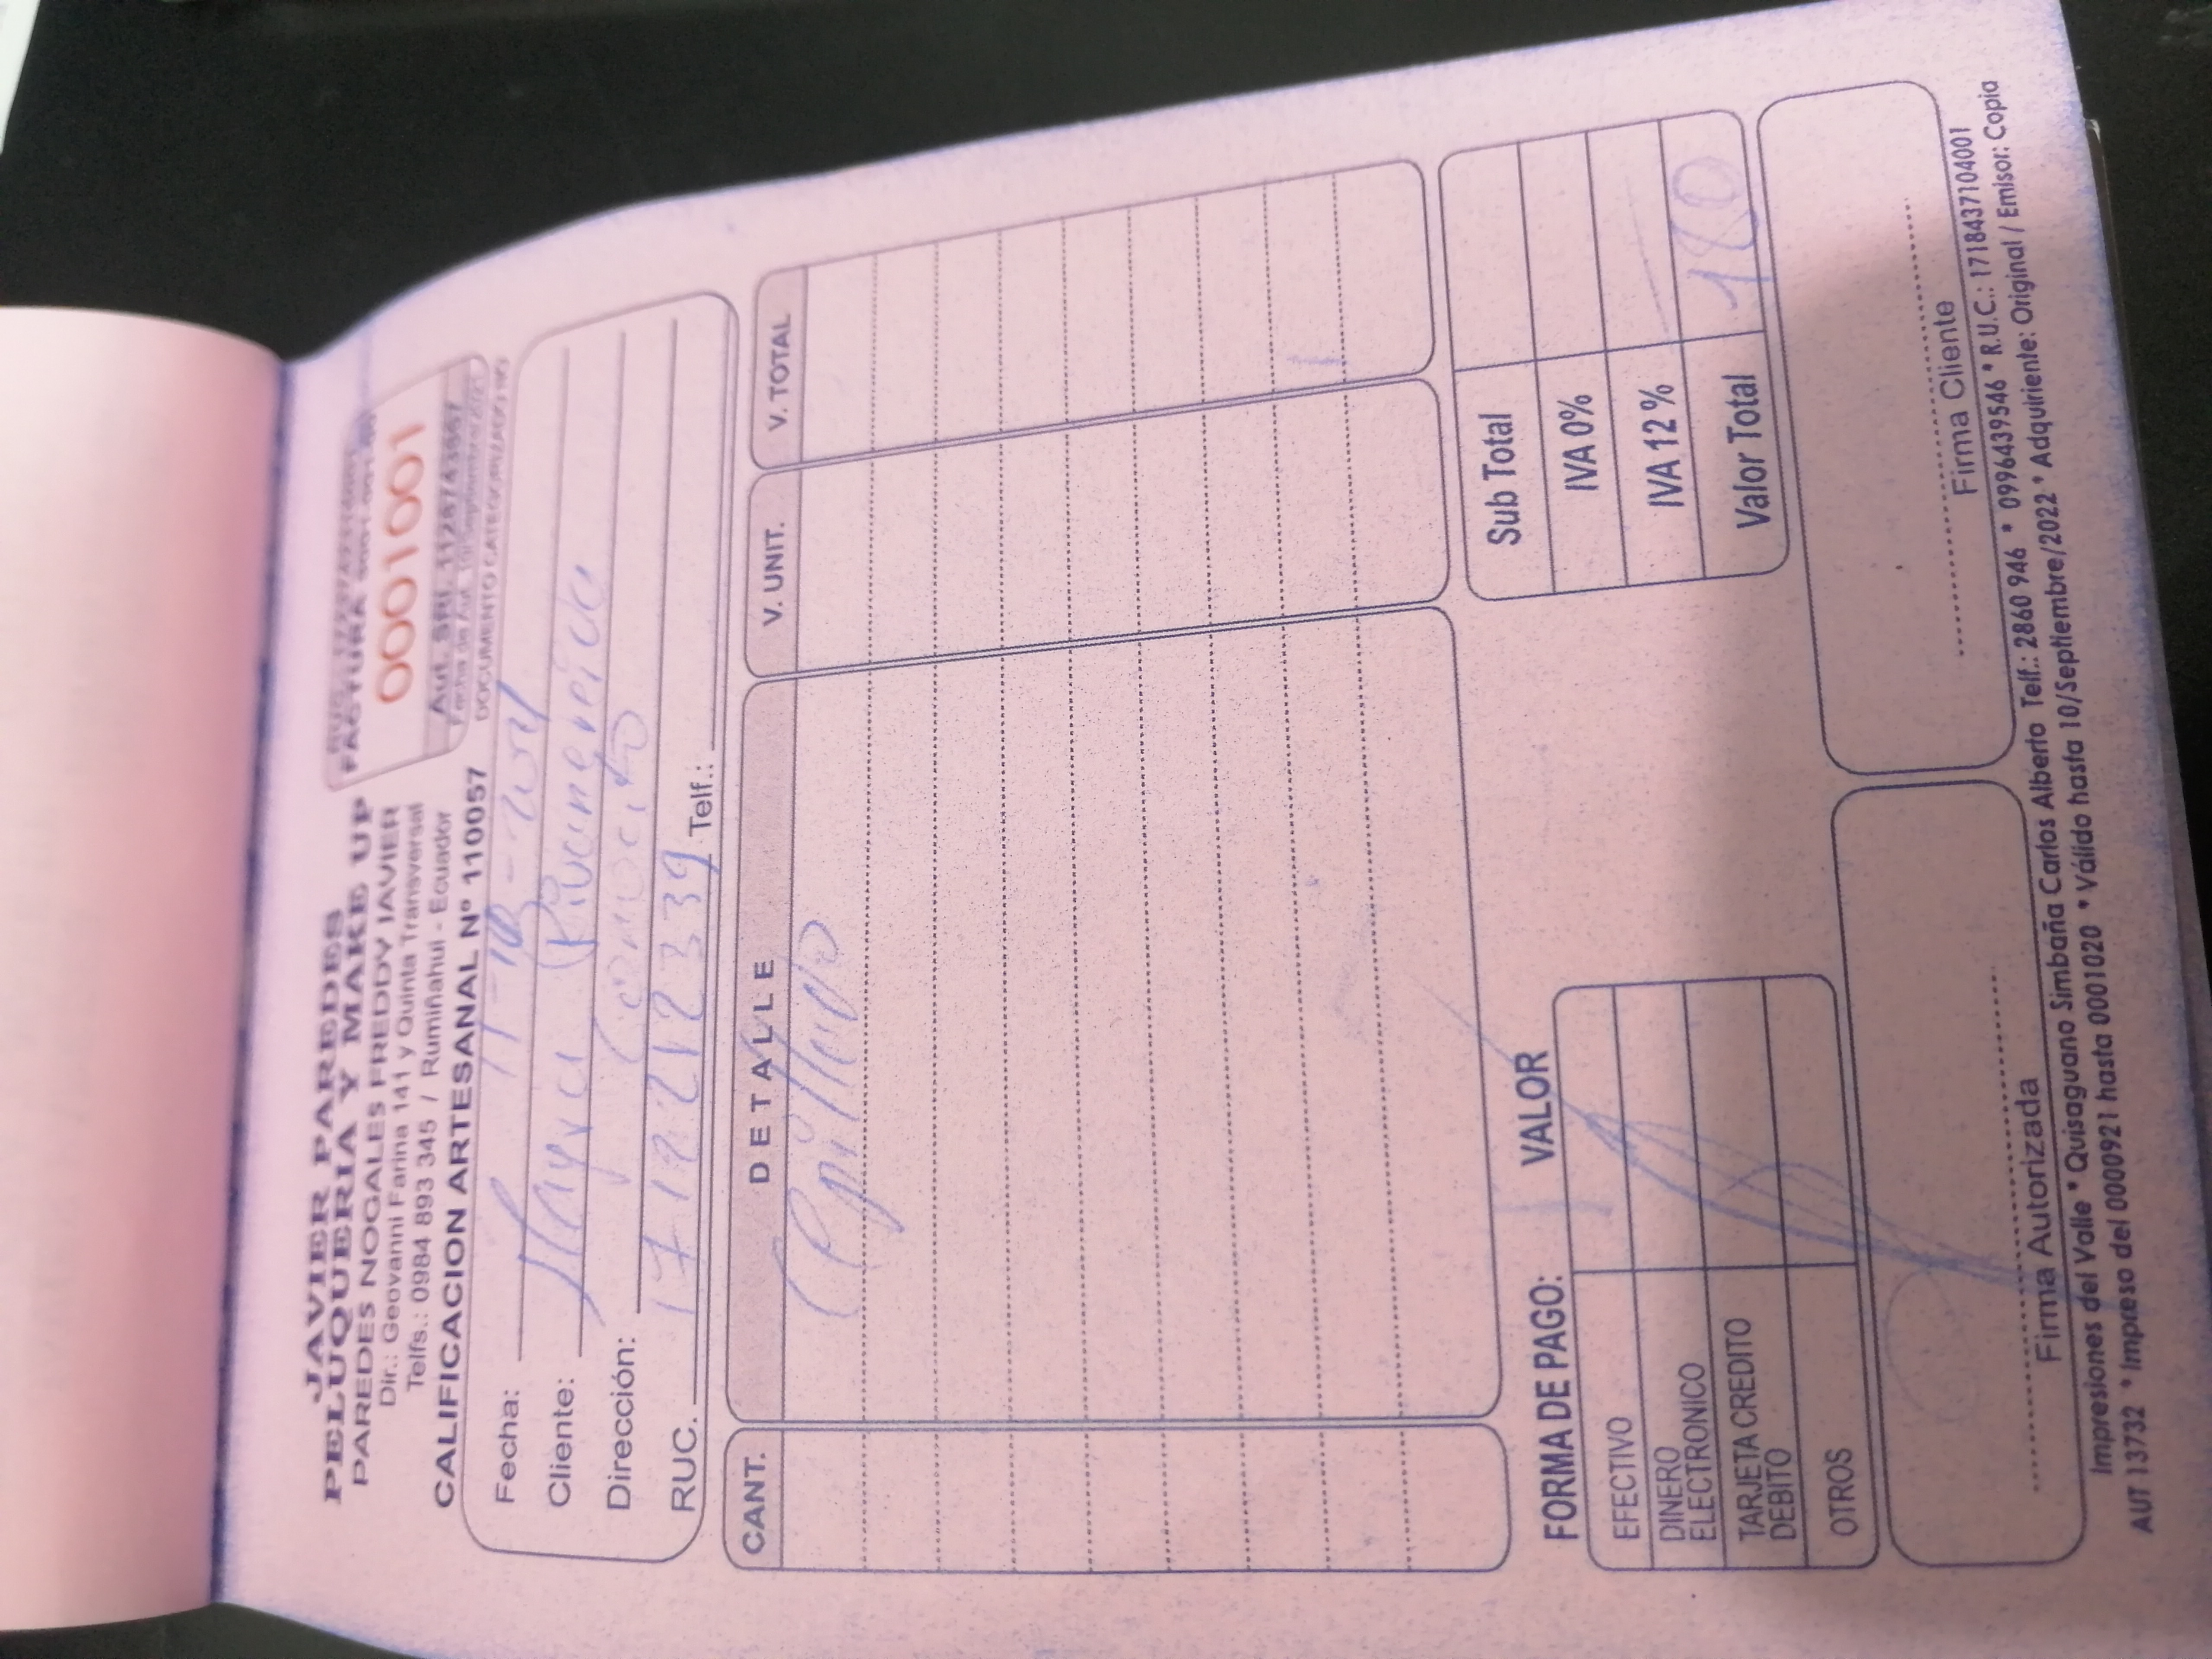 JAVIER PAREDES
PELUQUERIA Y MAKE UP
PAREDES NOGALES FREDDY JAVIER
Dir.: Geovanni Farina 141 y Quinta Transversal
Telfs.: 0984 893 345 / Rumiñahui - Ecuador
CALIFICACION ARTESANAL Nº 110057
FACTURA
0001001
Aut. SRI.
DOCUMENTO CATEGORIZADO NO
Fecha:
Cliente: Mayra Rivadeneira
Dirección: Conocoto
RUC. Telf.:
CANT. DETALLE V. UNIT. V. TOTAL
Cepillado
FORMA DE PAGO: VALOR
EFECTIVO
DINERO ELECTRONICO
TARJETA CREDITO DEBITO
OTROS
Sub Total
IVA 0%
IVA 12 %
Valor Total
Firma Autorizada
Firma Cliente
Impresiones del Valle * Quisaguano Simbaña Carlos Alberto Telf.: 2860 946 * 0996439546 * R.U.C.: 1718437104001
AUT 13732 * Impreso del 0000921 hasta 0001020 * Válido hasta 10/Septiembre/2022 * Adquiriente: Original / Emisor: Copia